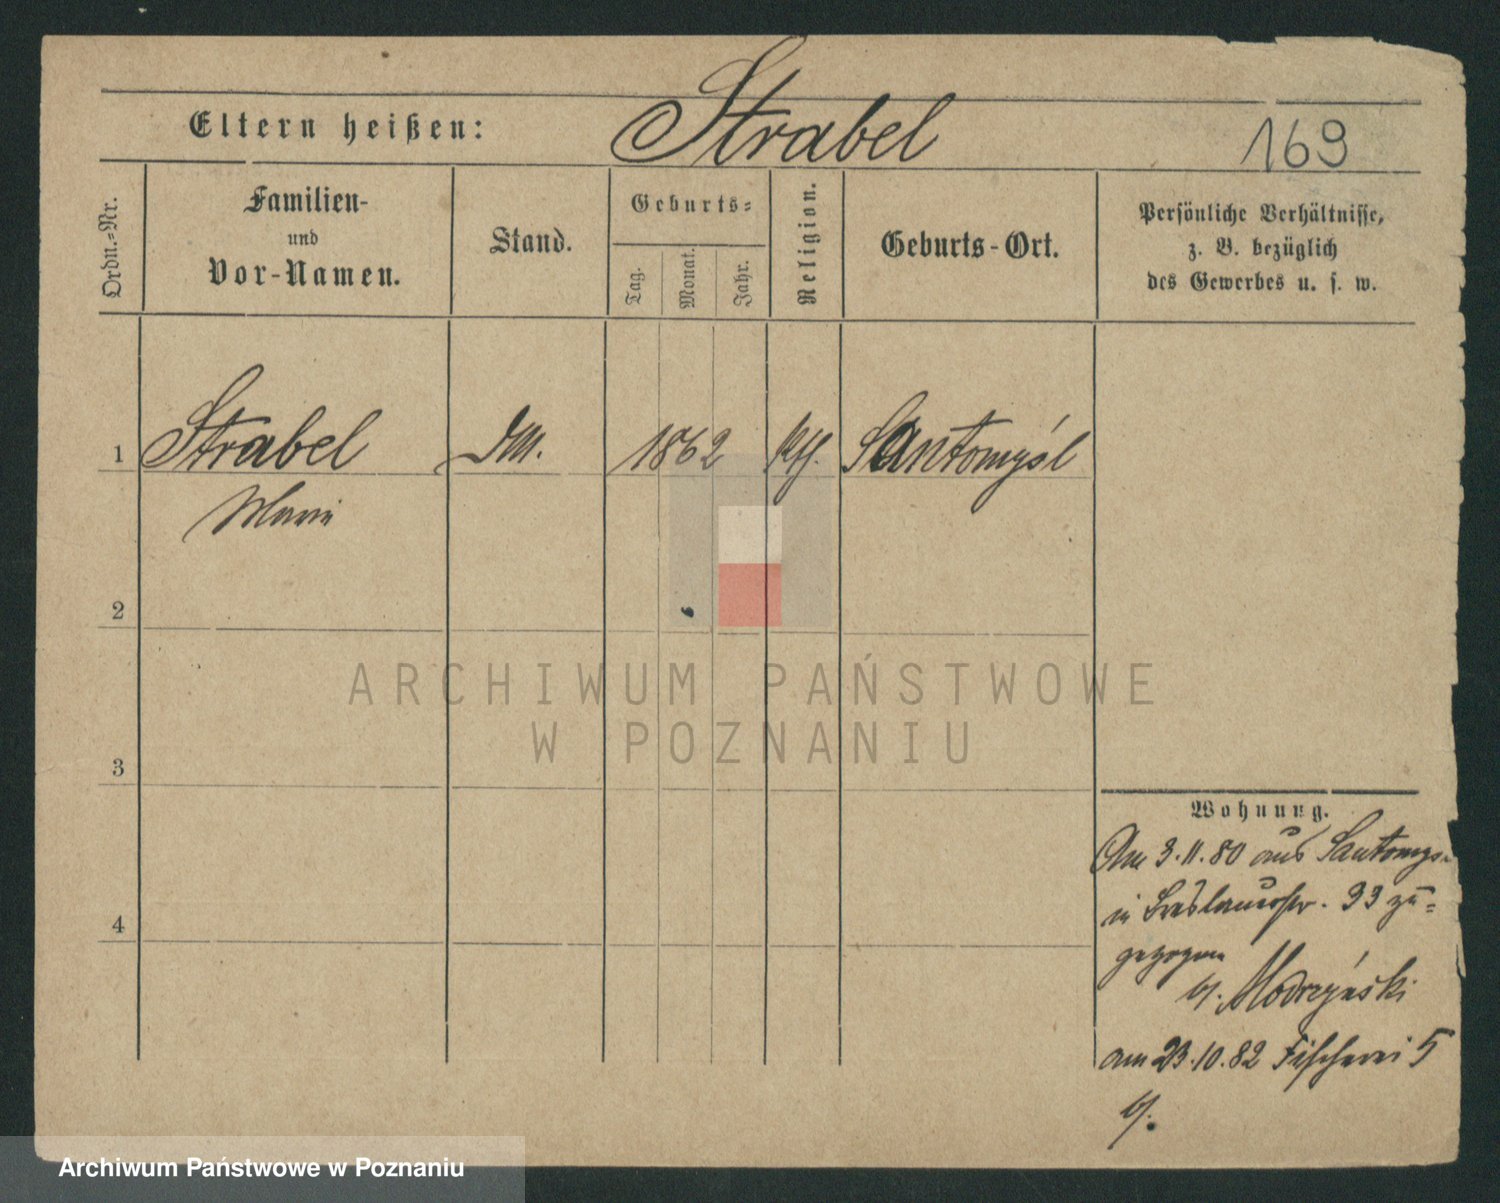 Strabel
Eltern heißen:
169
Ordn.=Nr.
Familien-
und
Vor-Namen.
Stand.
Geburts=
Tag.
Monat.
Jahr.
Religion.
Geburts-Ort.
Persönliche Verhältnisse,
z. B. bezüglich
des Gewerbes u. s. w.
1 Strabel 1862 Santomyśl
Marie
2
3
4
ARCHIWUM PAŃSTWOWE
W POZNANIU
Wohnung.
Am 3.11.80 aus Santomys.
in Breslauerstr. 33 zu=
gezogen
Modrzyński
am 23.10.82 Fischerei 5
Archiwum Państwowe w Poznaniu